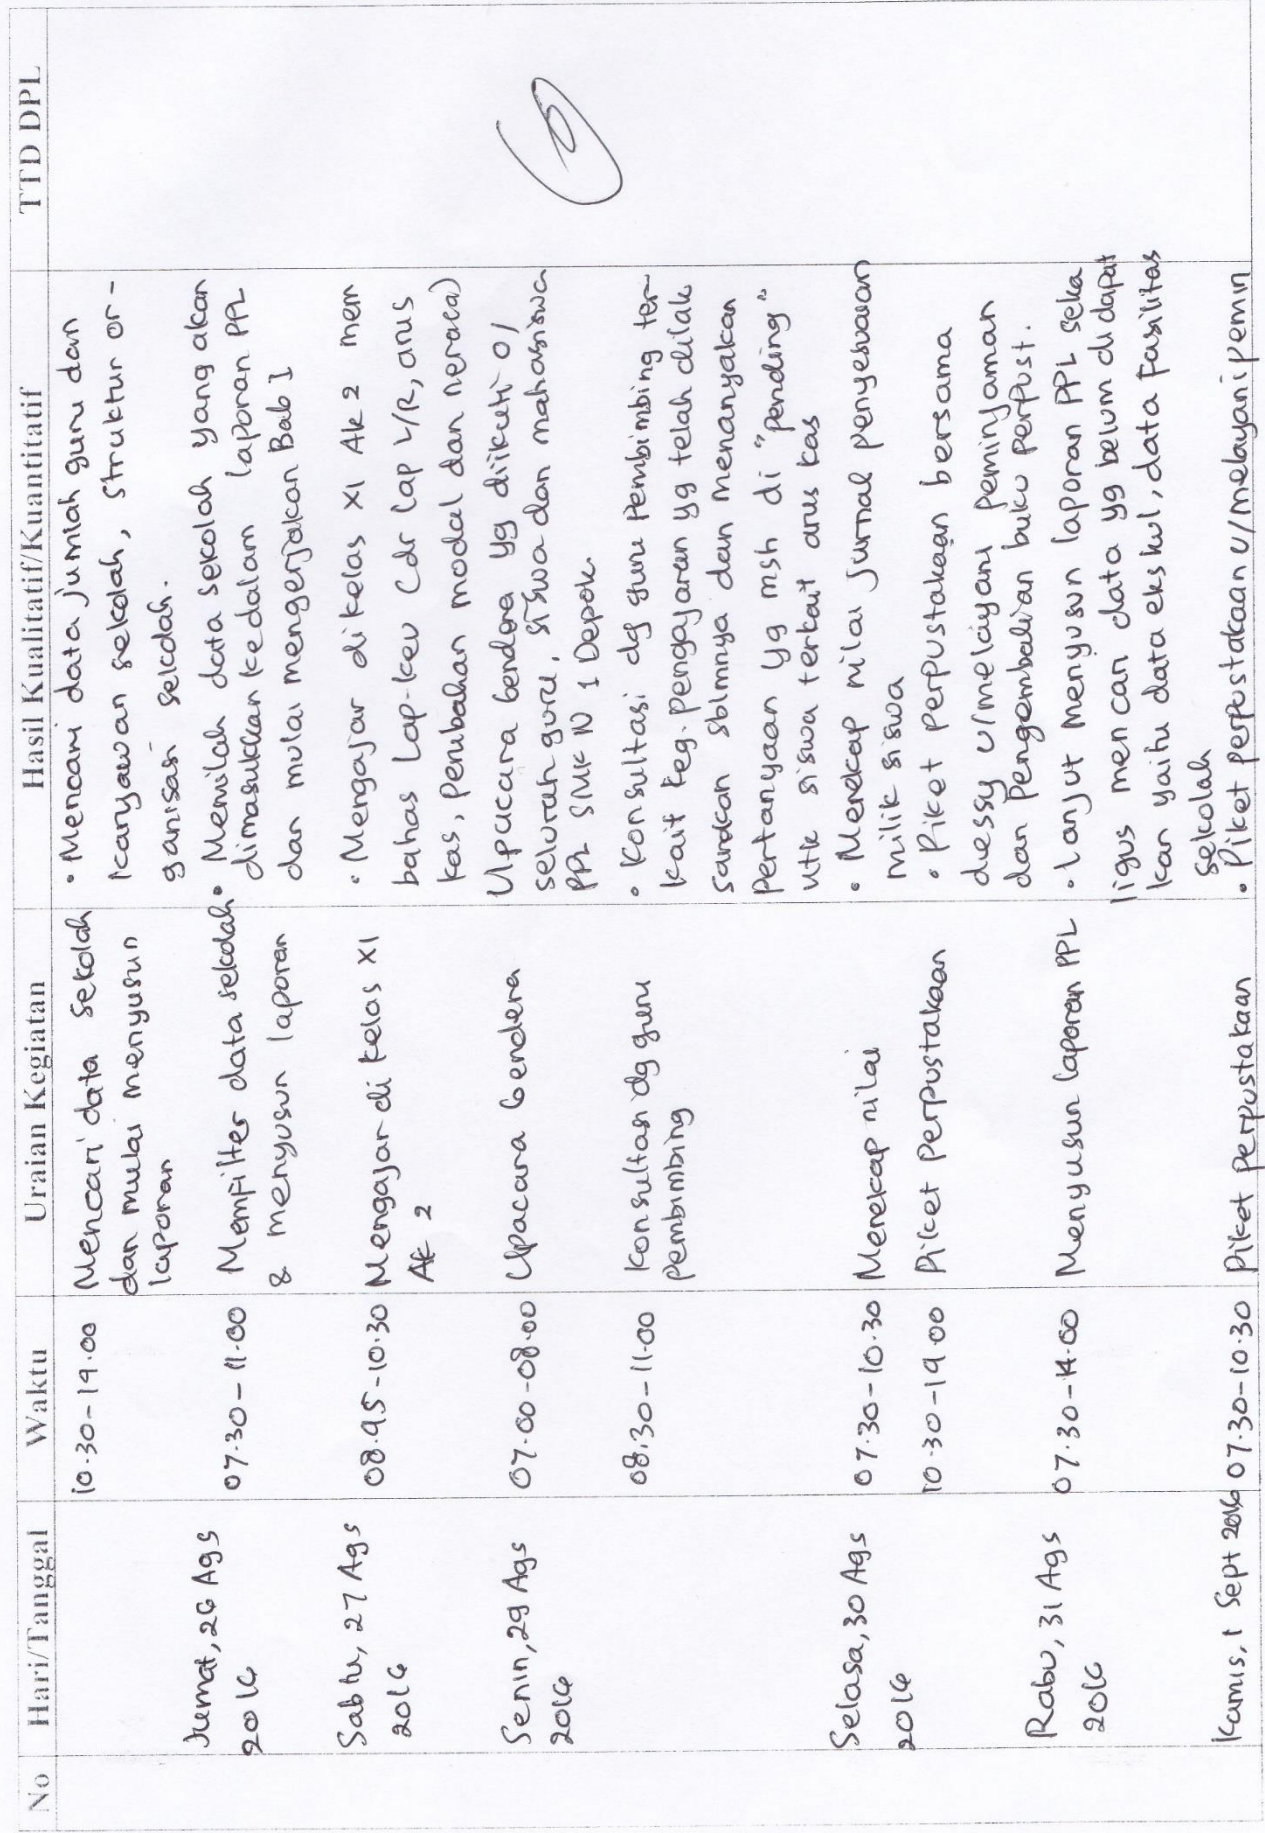 No Hari/Tanggal Waktu Uraian Kegiatan Hasil Kualitatif/Kuantitatif TTD DPL
10.30-14.00 Mencari data sekolah • Mencari data jumlah guru dan
dan mulai menyusun karyawan sekolah, struktur or-
laporan ganisasi sekolah.
Jumat, 26 Ags 07.30-11.00 Memfilter data sekolah • Memilah data sekolah yang akan
2016 & menyusun laporan dimasukkan kedalam laporan PPL
dan mulai mengerjakan Bab I
Sabtu, 27 Ags 08.45-10.30 Mengajar di kelas XI • Mengajar di kelas XI Ak 2 mem
2016 Ak 2 bahas Lap-keu Cdr Lap L/R, arus
kas, perubahan modal dan neraca)
Senin, 29 Ags 07.00-08.00 Upacara bendera Upacara bendera yg diikuti o/
2016 seluruh guru, siswa dan mahasiswa
PPL SMK N 1 Depok.
08.30-11.00 Konsultasi dg guru • Konsultasi dg guru pembimbing ter-
pembimbing kait keg. pengajaran yg telah dilak
sanakan sblmnya dan menanyakan
pertanyaan yg msh di "pending"
utk siswa terkait arus kas
Selasa, 30 Ags 07.30-10.30 Merekap nilai • Merekap nilai jurnal penyesuaian
2016 milik siswa
10.30-14.00 Piket perpustakaan • Piket perpustakaan bersama
diessy u/melayani peminjaman
dan pengembalian buku perpust.
Rabu, 31 Ags 07.30-14.00 Menyusun laporan PPL • Lanjut menyusun laporan PPL seka
2016 ligus mencari data yg belum didapat
kan yaitu data ekskul, data fasilitas
sekolah
Kamis, 1 Sept 2016 07.30-10.30 Piket perpustakaan • Piket perpustakaan u/melayani pemin